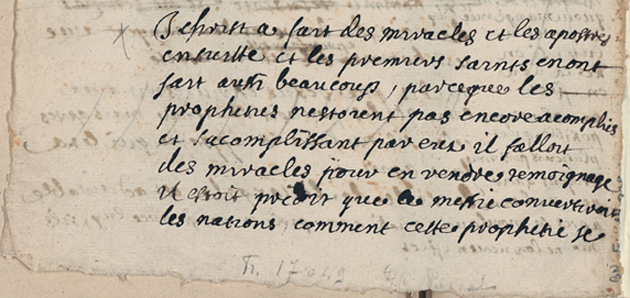 J christ a fait des miracles et les apostres
ensuitte et les premiers saints en ont
fait aussi beaucoup, parceque les
propheties nestoient pas encore acomplies
et sacomplissant par eux il falloit
des miracles pour en rendre temoignage
il estoit predit que le messie convertiroit
les nations, comment cette prophetie se
fr. 17 049